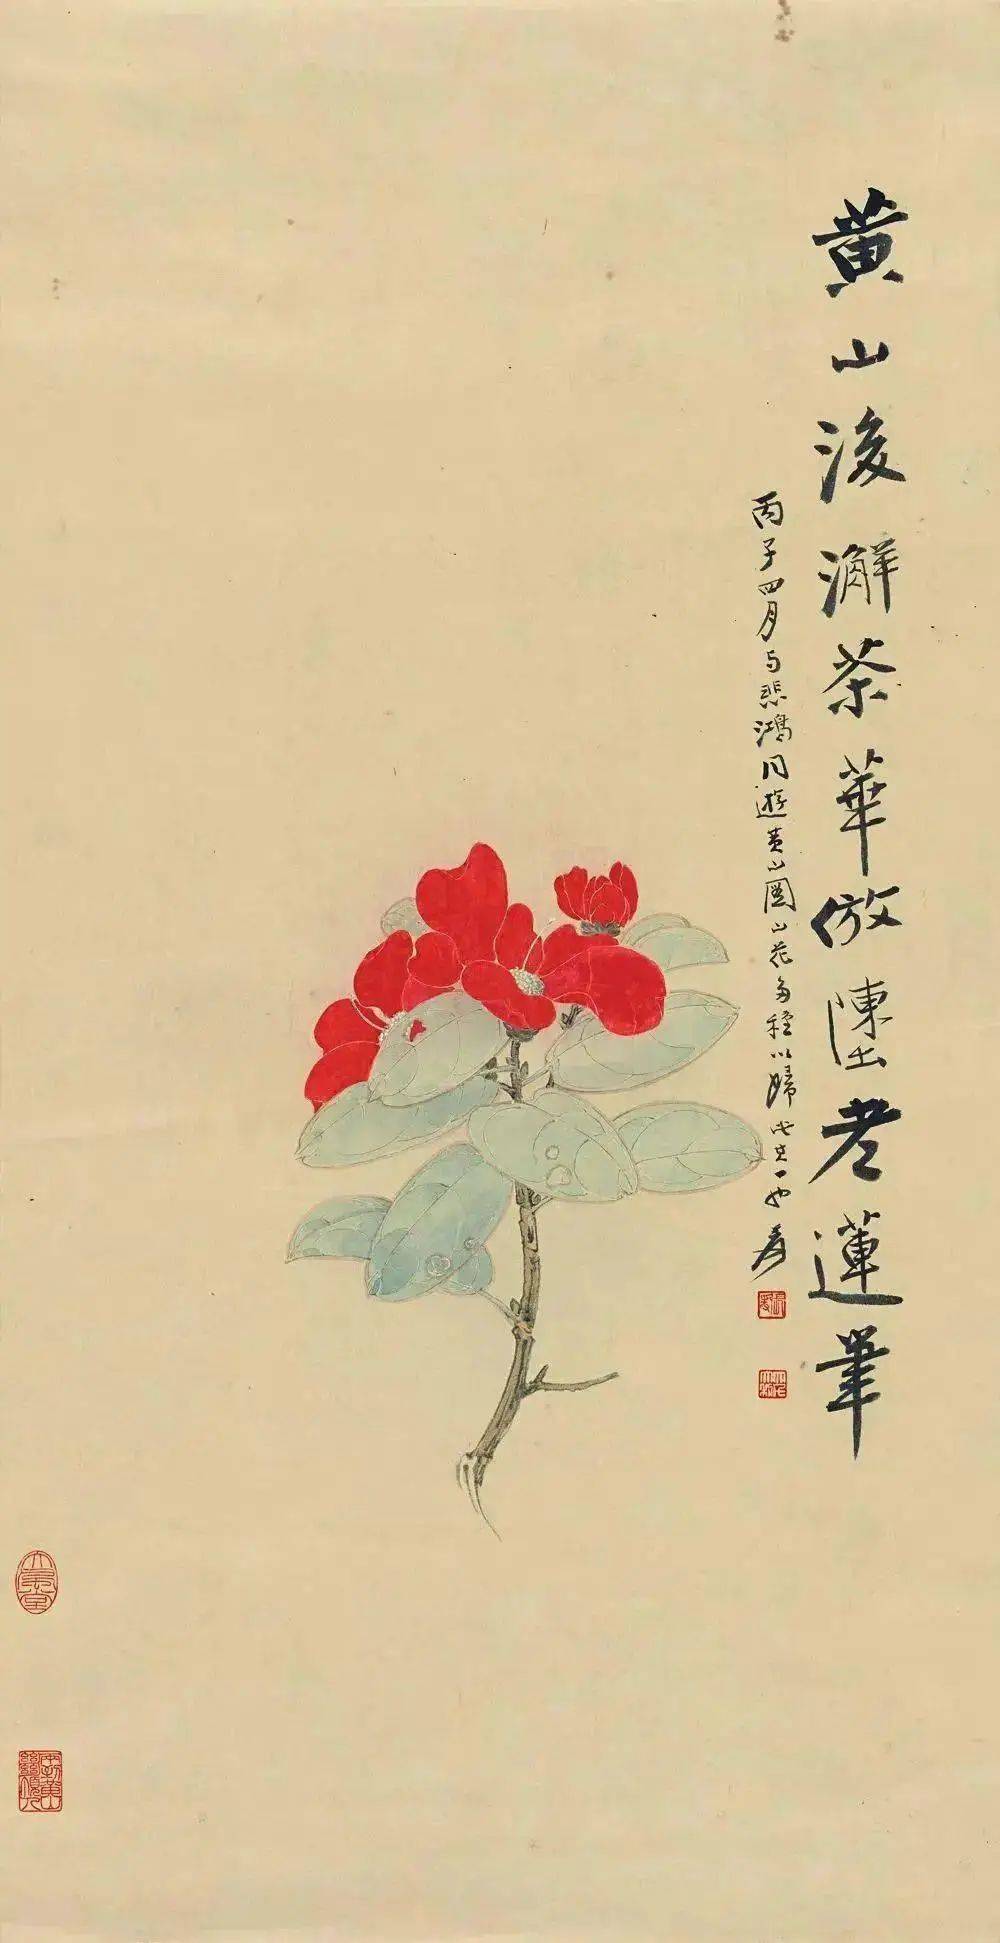 黄山後澥茶華倣陳老蓮筆
丙子四月与悲鴻同遊黄山圖山花多種以歸此其一也爰
張爰
大風堂